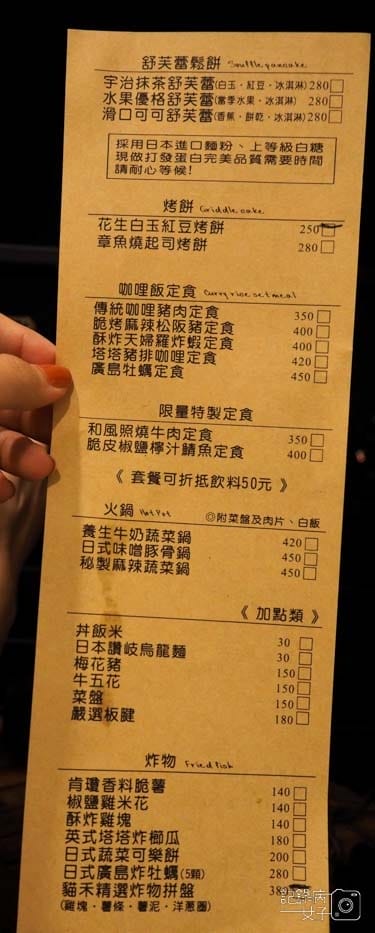 舒芙蕾鬆餅 Souffle pancake
宇治抹茶舒芙蕾(白玉・紅豆・冰淇淋) 280
水果優格舒芙蕾(當季水果・冰淇淋) 280
滑口可可舒芙蕾(香蕉・餅乾・冰淇淋) 280
採用日本進口麵粉、上等級白糖
現做打發蛋白完美品質需要時間
請耐心等候!
烤餅 Griddle cake
花生白玉紅豆烤餅 250
章魚燒起司烤餅 280
咖哩飯定食 Curry rice set meal
傳統咖哩豬肉定食 350
脆烤麻辣松阪豬定食 400
酥炸天婦羅炸蝦定食 400
塔塔豬排咖哩定食 420
廣島牡蠣定食 450
限量特製定食
和風照燒牛肉定食 350
脆皮椒鹽檸汁鯖魚定食 400
《 套餐可折抵飲料50元 》
火鍋 Hot Pot ◎附菜盤及肉片、白飯
養生牛奶蔬菜鍋 420
日式味噌豚骨鍋 450
秘製麻辣蔬菜鍋 450
《 加點類 》
丼飯米 30
日本讚岐烏龍麵 30
梅花豬 150
牛五花 150
菜盤 150
嚴選板腱 180
炸物 Fried fish
肯瓊香料脆薯 140
椒鹽雞米花 140
酥炸雞塊 140
英式塔塔炸櫛瓜 180
日式蔬菜可樂餅 200
日式廣島炸牡蠣(5顆) 280
貓禾精選炸物拼盤
(雞塊・薯條・薯泥・洋蔥圈)
記錄病
女子